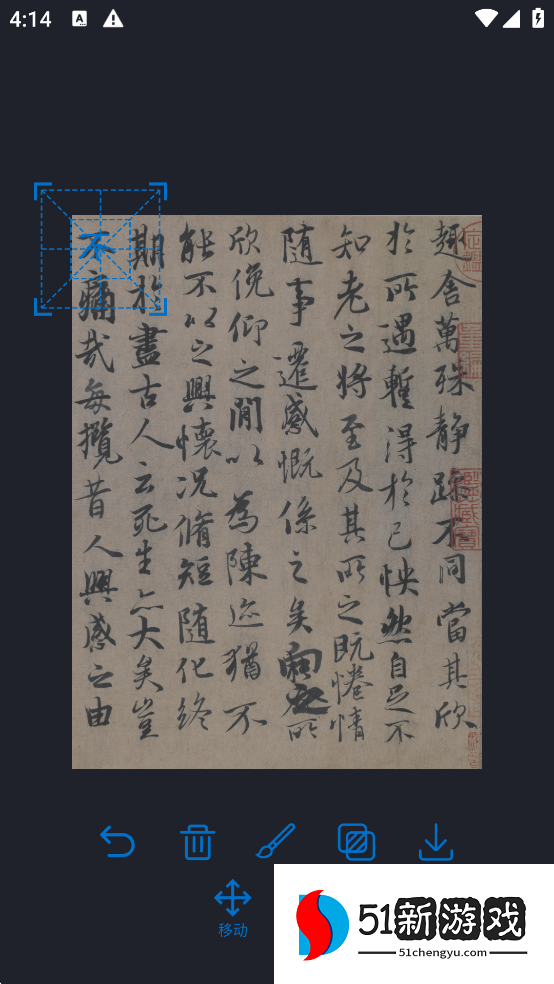 4:14
趣舍萬殊静躁不同當其欣
於所遇蹔得於己怏然自足不
知老之將至及其所之既惓情
隨事遷感慨係之矣向之所
欣俛仰之閒以為陳迹猶不
能不以之興懷况脩短隨化終
期於盡古人云死生亦大矣豈
不痛哉每攬昔人興感之由
移动
51新游戏
51chengyu.com